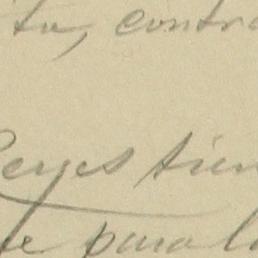 tu, contra
Reyes tien
se para la